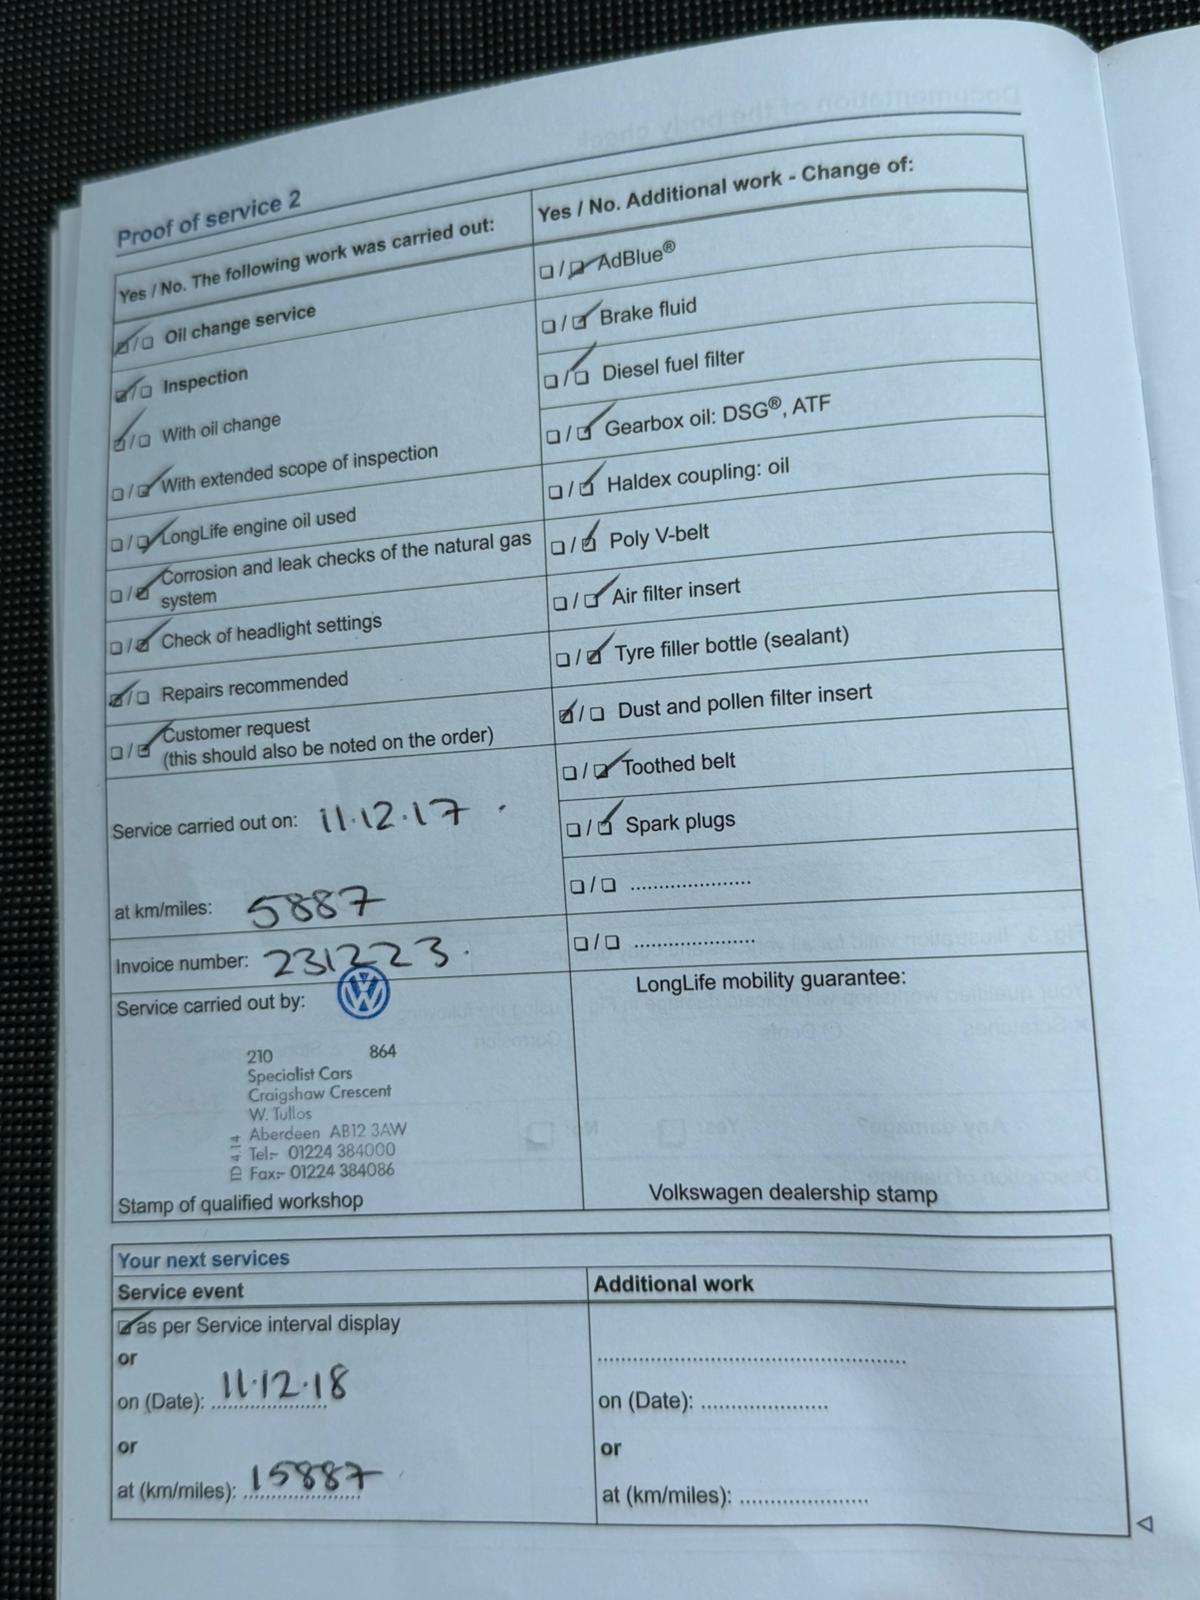 Proof of service 2
Yes / No. The following work was carried out:
Oil change service
Inspection
With oil change
With extended scope of inspection
LongLife engine oil used
Corrosion and leak checks of the natural gas
system
Check of headlight settings
Repairs recommended
Customer request
(this should also be noted on the order)
Service carried out on: 11.12.17
at km/miles: 5887
Invoice number: 231223.
Service carried out by:
210 864
Specialist Cars
Craigshaw Crescent
W. Tullos
Aberdeen AB12 3AW
Tel:- 01224 384000
Fax:- 01224 384086
ID 414
Stamp of qualified workshop
Yes / No. Additional work - Change of:
AdBlue®
Brake fluid
Diesel fuel filter
Gearbox oil: DSG®, ATF
Haldex coupling: oil
Poly V-belt
Air filter insert
Tyre filler bottle (sealant)
Dust and pollen filter insert
Toothed belt
Spark plugs
LongLife mobility guarantee:
Volkswagen dealership stamp
Your next services
Service event
as per Service interval display
or
on (Date): 11.12.18
or
at (km/miles): 15887
Additional work
on (Date):
or
at (km/miles):